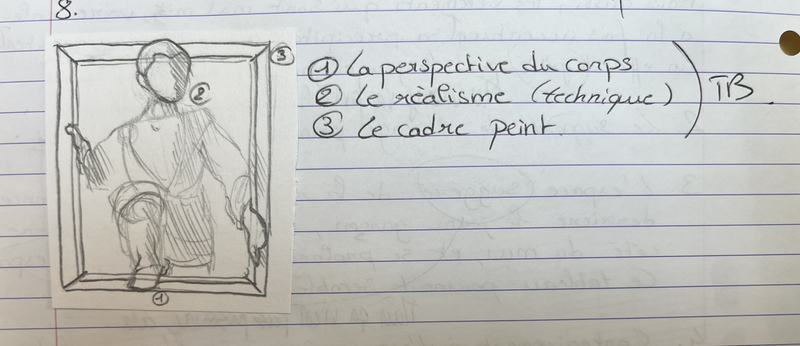 8.
① La perspective du corps
② Le rèalisme (technique)
③ Le cadre peint.
TB.
③
②
①